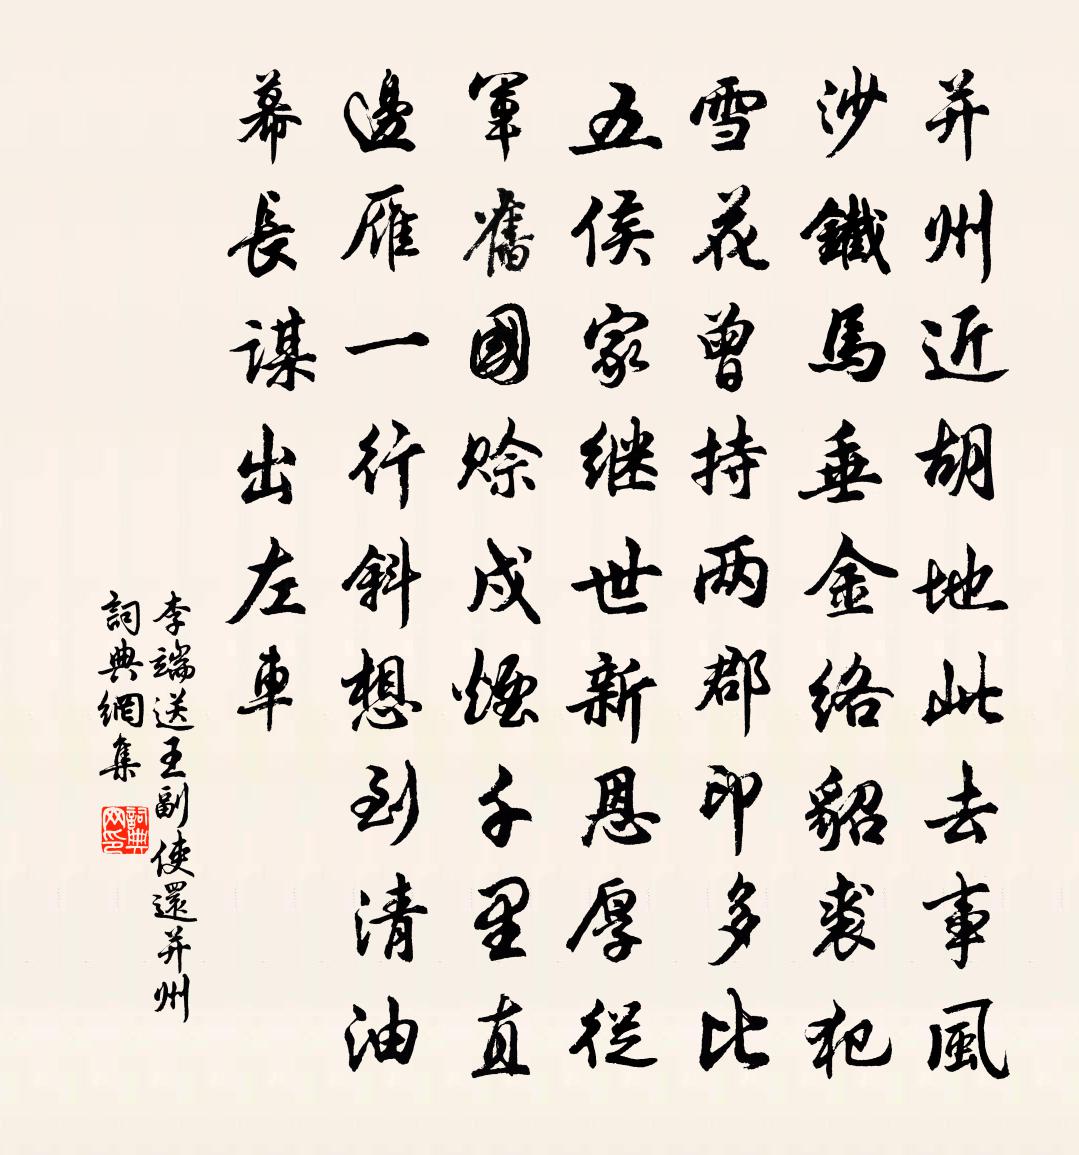 并州近胡地此去事風
沙鐵馬垂金絡貂裘犯
雪花曾持两郡印多比
五侯家继世新恩厚從
軍舊國賒戍煙千里直
邊雁一行斜想到清油
幕長謀出左車
李端送王副使還并州
詞典網集
詞典
网印